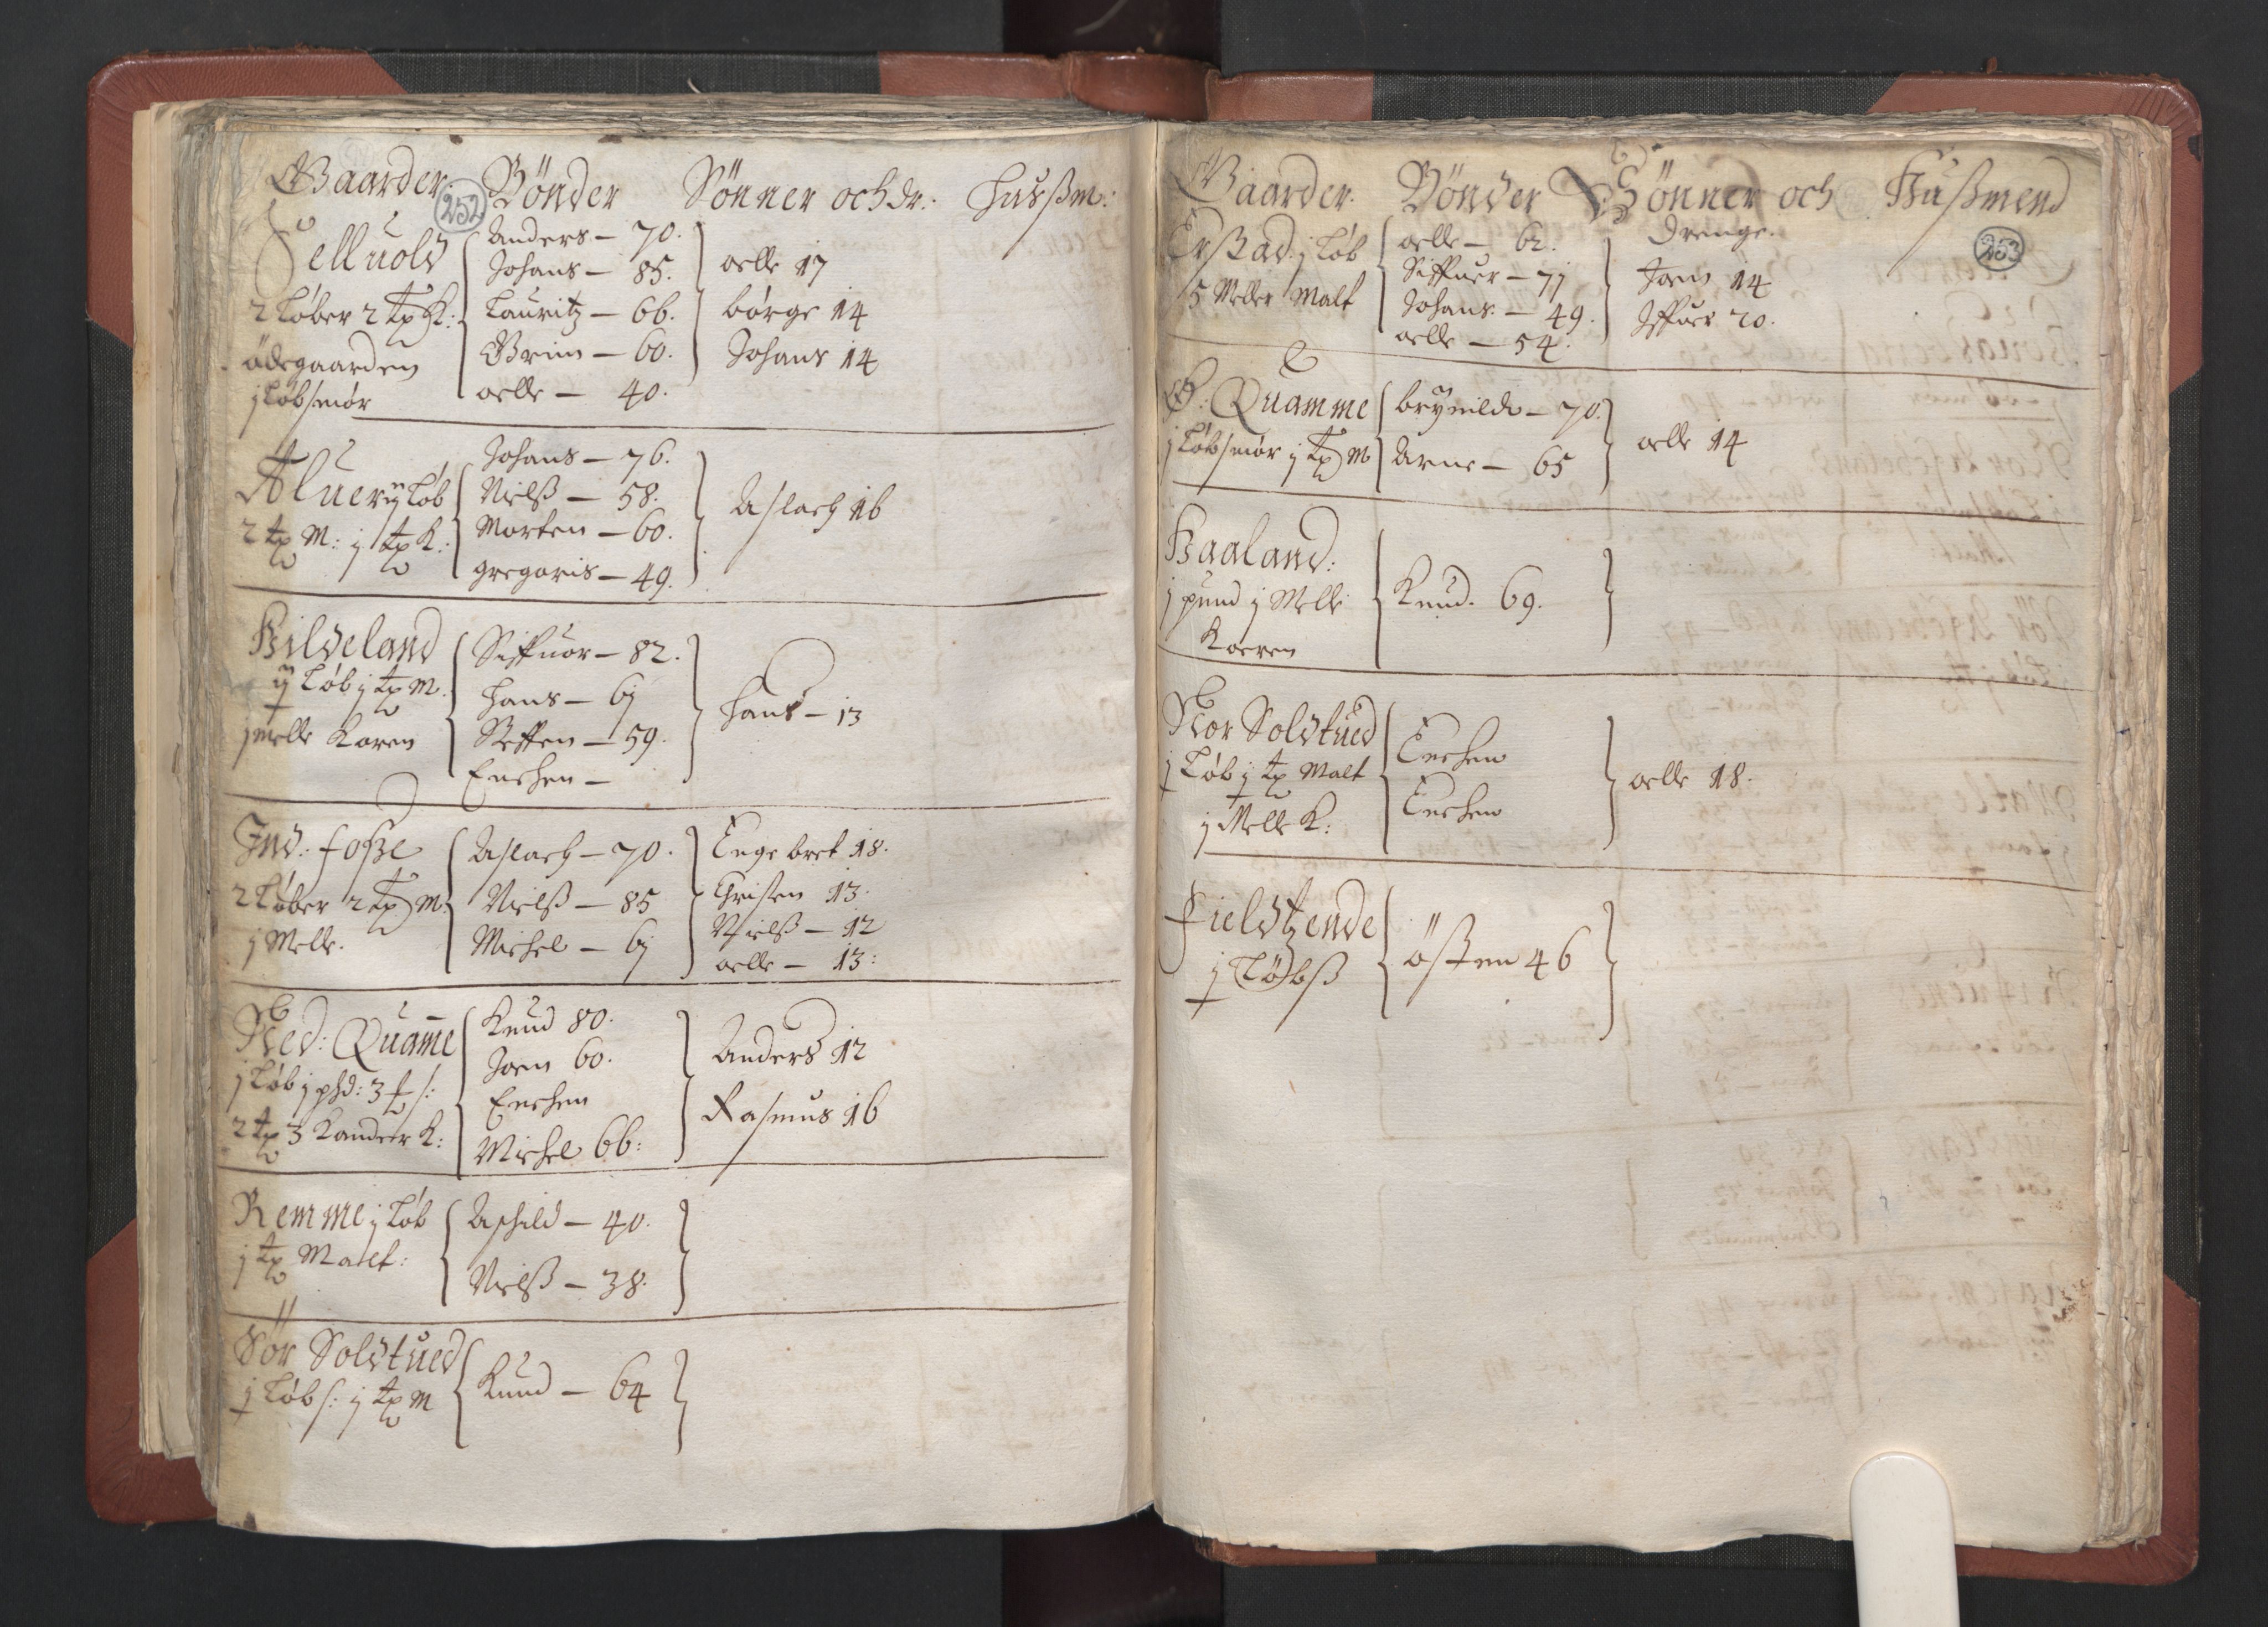 Gaarder Bönder Sönner och dr: Hussm:
252
Selluold
2 Løber 2 tp K:
ödegaarden
j Løb smør
Anders – 70.
Johans – 85.
Lauritz – 66.
Brim – 60.
oelle – 40.
oelle 17
børge 14
Johans 14
Aluer ij Løb
2 tp M: j tp K:
Johans – 76.
Nielß – 58.
Morten – 60.
gregoris – 49.
Aslach 16
Hildeland
ij Løb j tp M.
j melle Koren
Siffuor – 82.
Hans – 6j
Steffen – 59.
Enchen –
Hans – 13
Ind: fosse
2 Løber 2 tp M:
j Melle.
Aslach – 70.
Nielß – 85
Michel – 6j
Engebret 18.
Christen 13.
Nielß – 12
oelle – 13:
Ned: Quame
j Løb j phd: 3 s:
2 tp 3 Kander K:
Knud 80.
Joen 60.
Enchen
Michel 66:
Anders 12
Rasmus 16
Remme j Løb
j tp Malt:
Aschild – 40.
Nielß – 38.
Sör Soldtued
j Løb s: j tp M
Knud – 64
Gaarder. Bönder Sönner och Hussmend
Drenge.
253
Erstad j Løb
5 Meller Malt
oelle – 62.
Siffuer – 7j
Johans – 49.
oelle – 54.
Joen 14
Iffuer 20.
Ö: Quamme
j Løb smør j tp M
brynild – 70.
Arne – 65
oelle 14
Haaland:
j pund j Melle
Koeren
Knud. 69.
Nor Soldtued
j Løb j tp Malt
j Melle K:
Enchen
Enchen
oelle 18.
Fieldtzende
j Löbß
östen 46